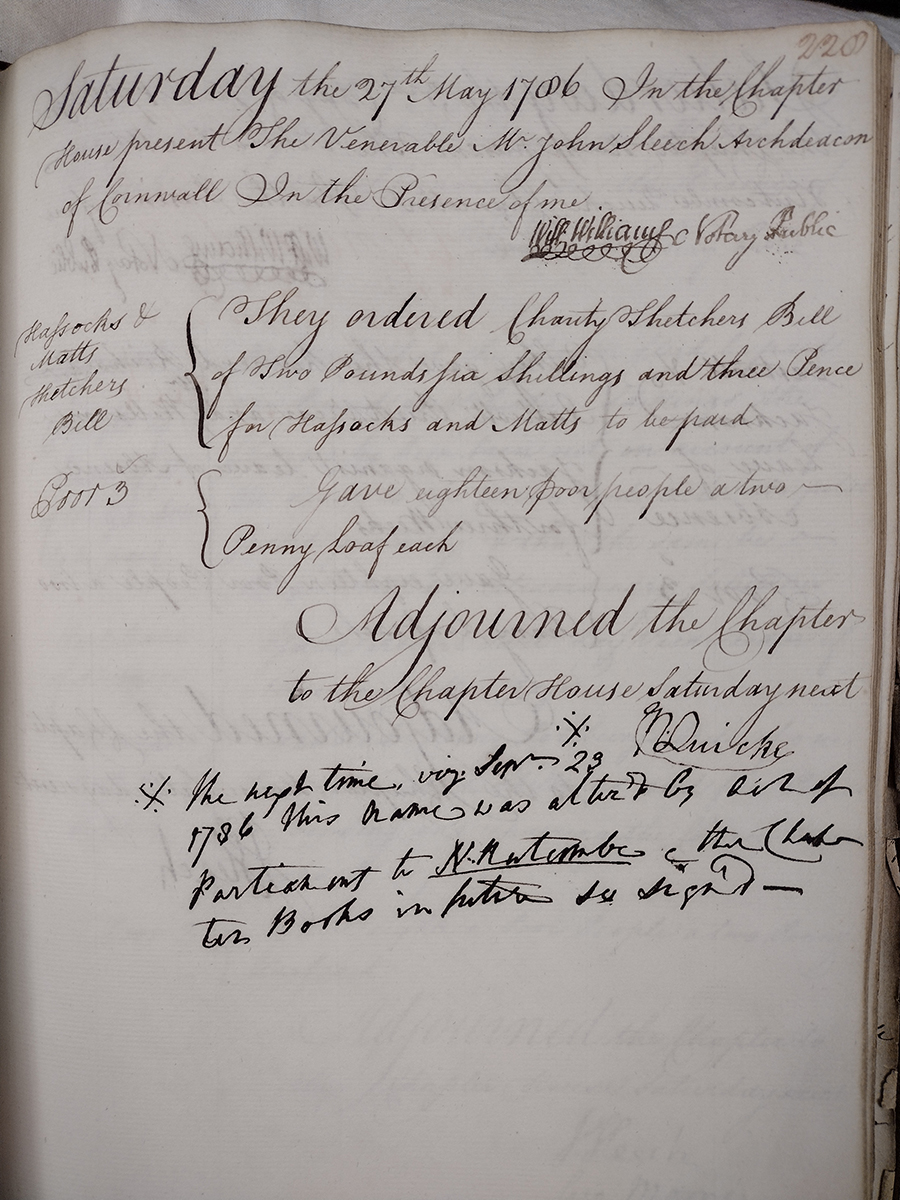 220
Saturday the 27th May 1786 In the Chapter
House present The Venerable Mr. John Sleech Archdeacon
of Cornwall In the Presence of me
Will: Williams Notary Public
Hassocks &
Matts
Thetchers
Bill
They ordered Charity Thetchers Bill
of Two Pounds six Shillings and three Pence
for Hassocks and Matts to be paid
Poor 3
Gave eighteen poor people a two
Penny Loaf each
Adjourned the Chapter
to the Chapter House Saturday next
※ N Quicke
※ The next time, viz. Sepr. 23
1786 this name was alter'd by Act of
Parliament to N. Nutcombe & the Chap
ter Books in future so sign'd —